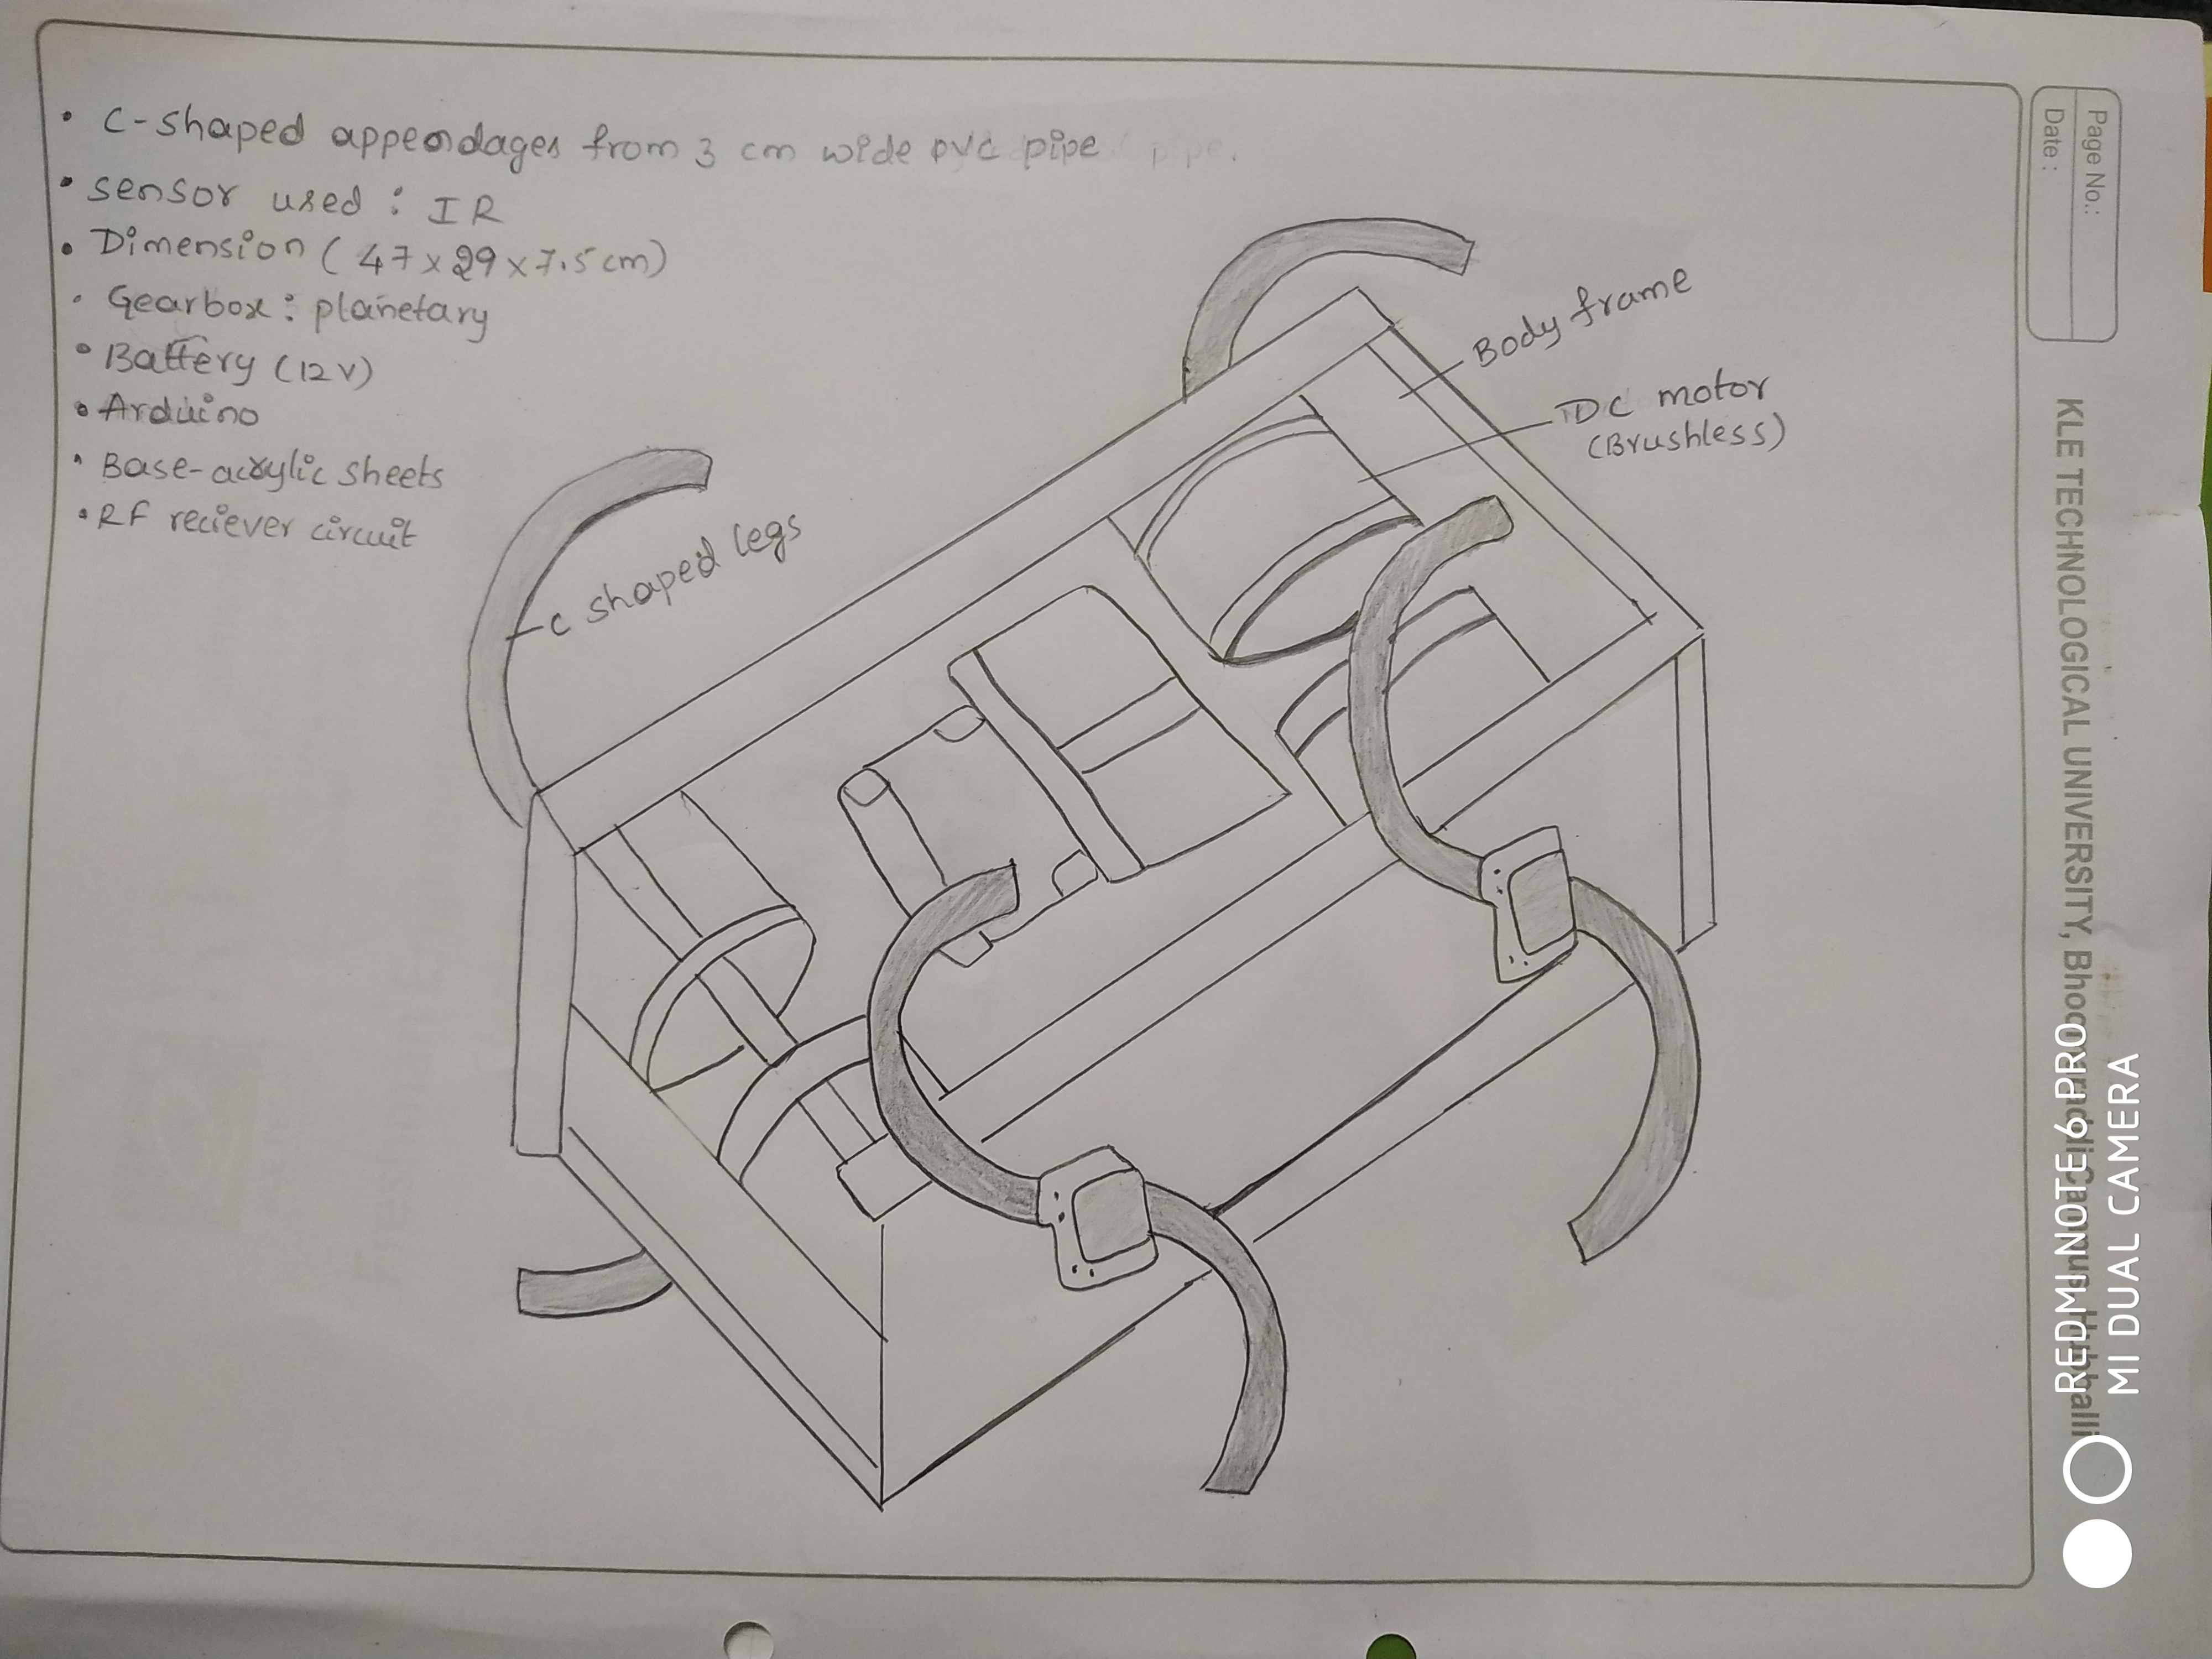 • C-shaped appendages from 3 cm wide pvc pipe
• sensor used : IR
• Dimension ( 47 x 29 x 7.5 cm)
• Gearbox : planetary
• Battery (12 V)
• Arduino
• Base-acrylic sheets
• RF reciever circuit
C shaped legs
Body frame
DC motor
(Brushless)
Page No.:
Date :
KLE TECHNOLOGICAL UNIVERSITY, Bhoomaraddi Campus, Hubballi
REDMI NOTE 6 PRO
MI DUAL CAMERA